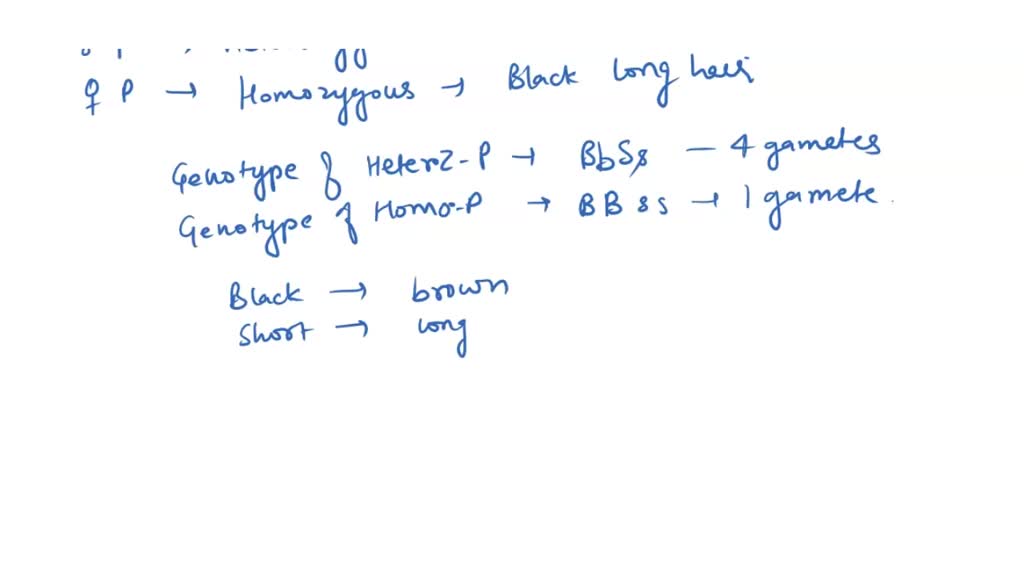 ♀ P → Homozygous → Black long hair
Genotype of Heter2-P → BbSs — 4 gametes
Genotype of Homo-P → BBss → 1 gamete
Black → brown
Short → long